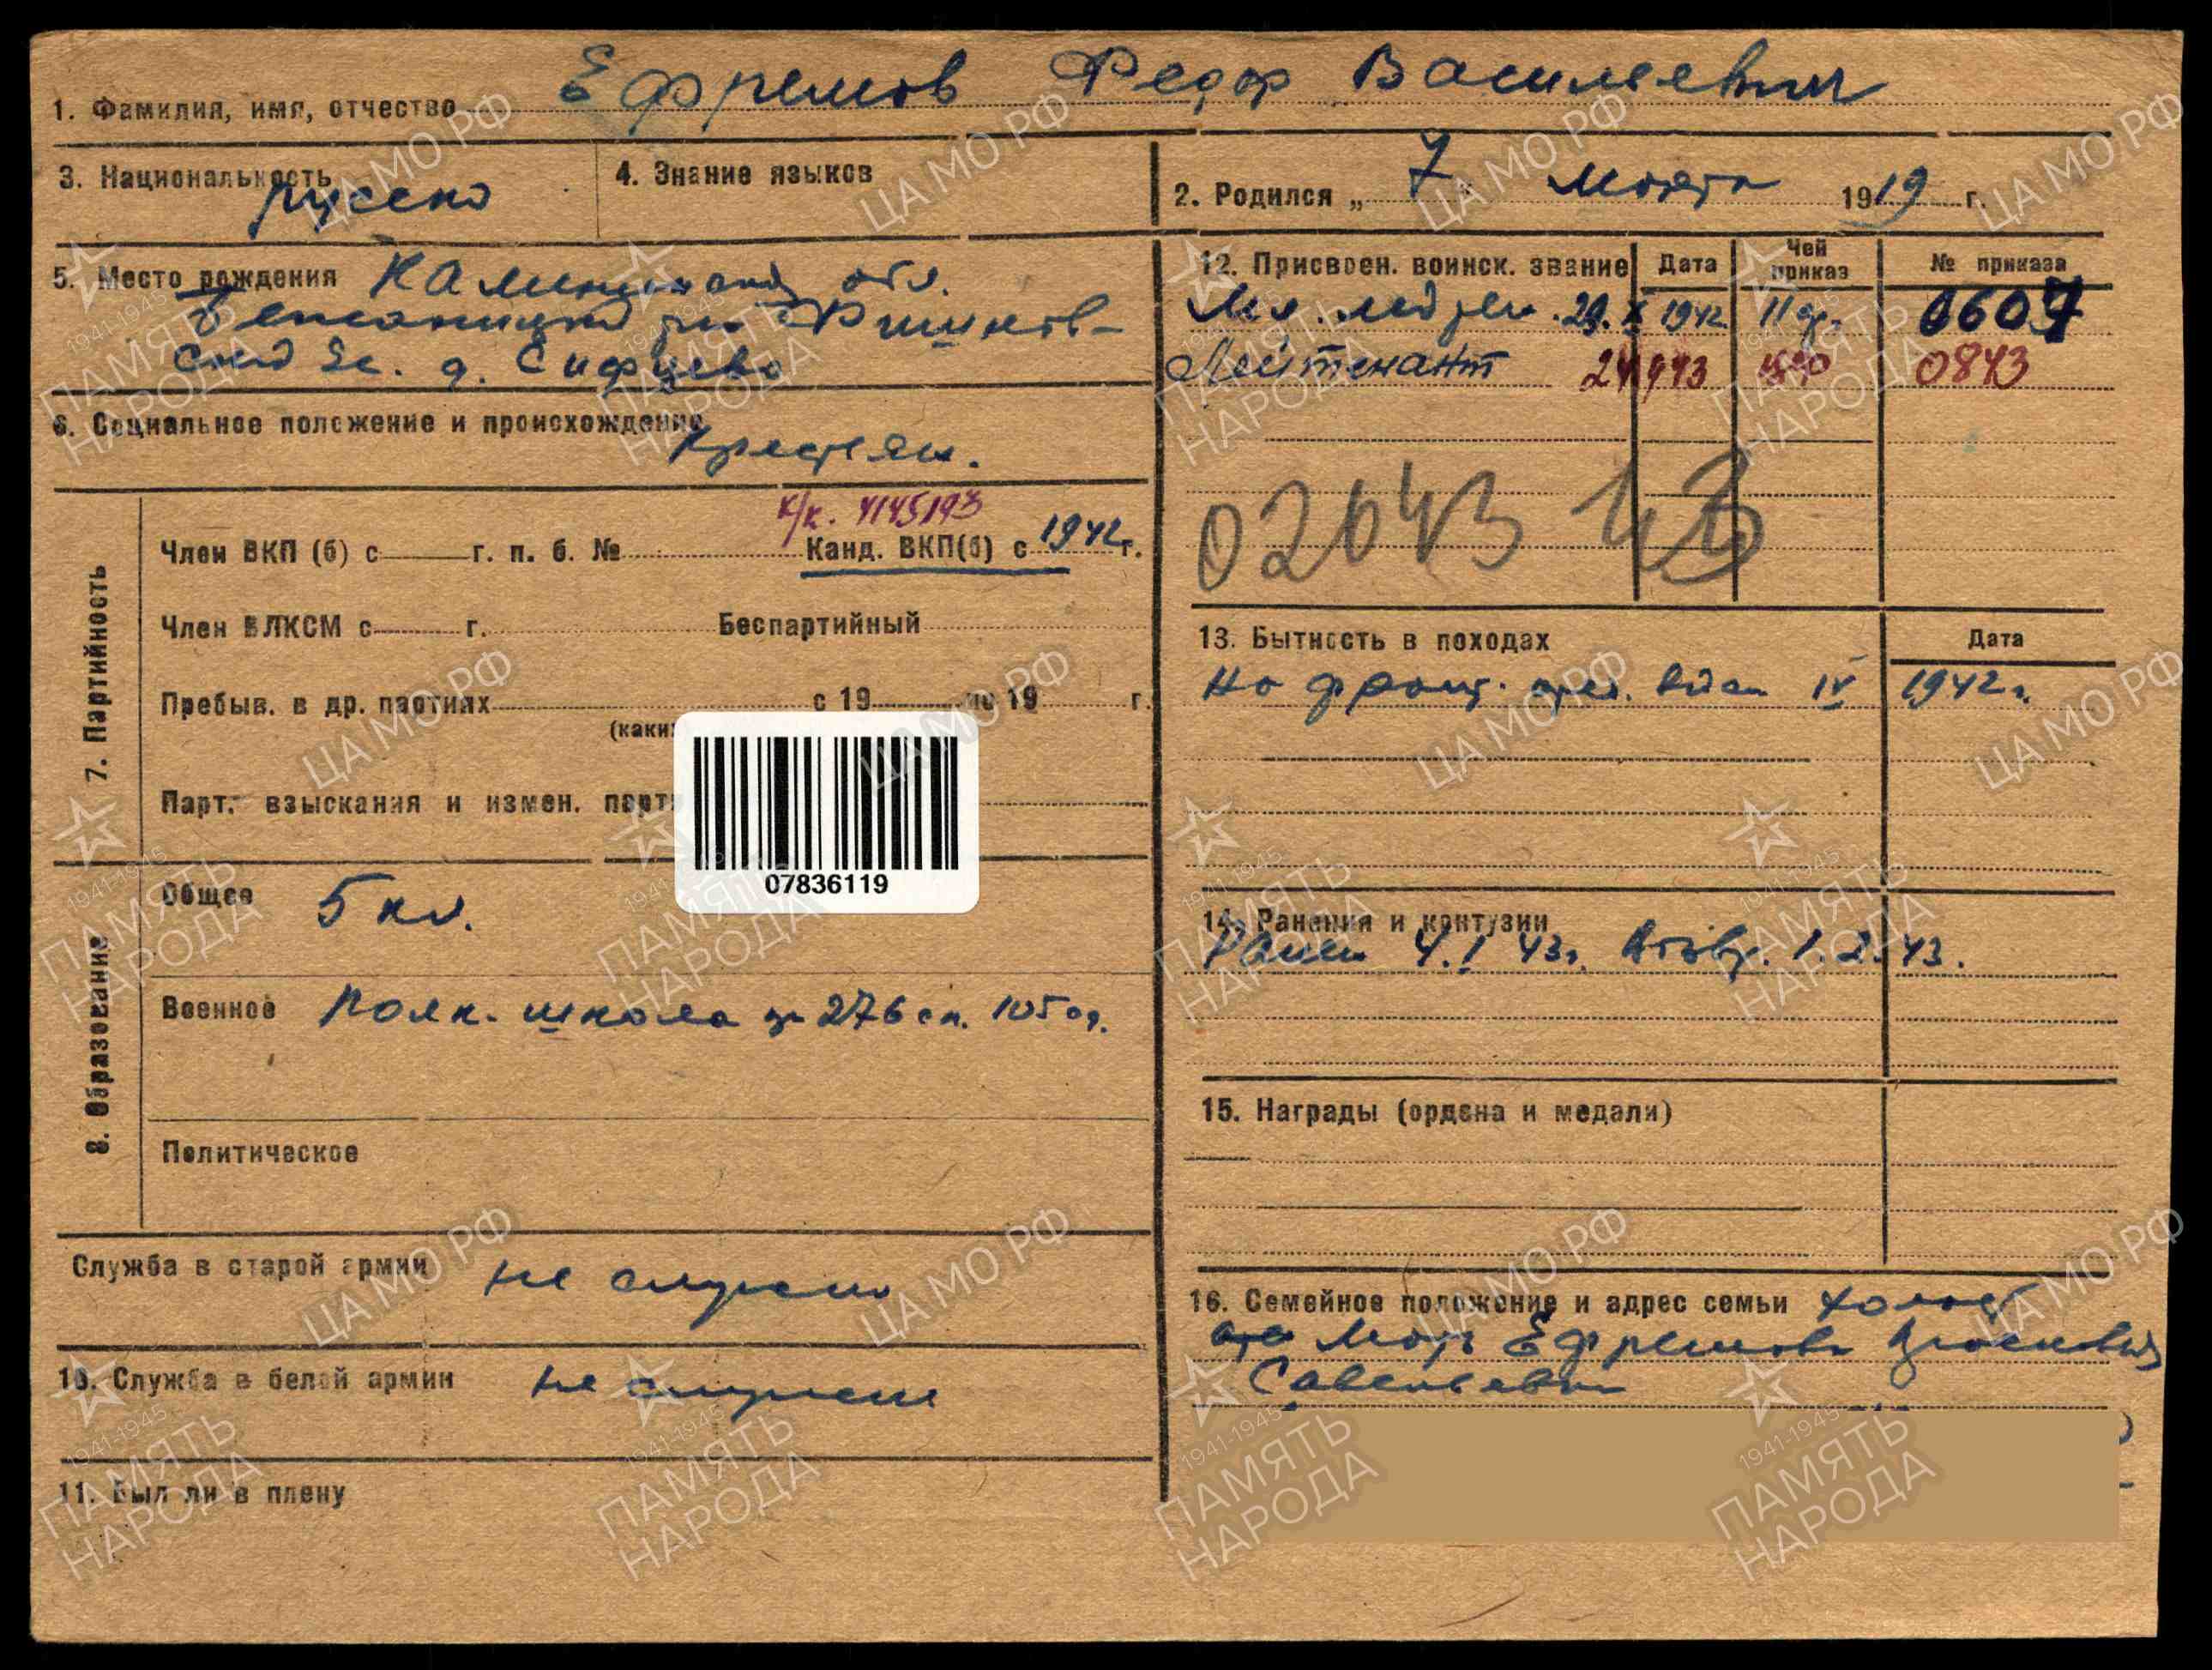 1. Фамилия, имя, отчество Ефремов Федор Васильевич
3. Национальность русско
4. Знание языков
2. Родился „ 7 " марта 1919 г.
5. Место рождения Калининская обл.
Бежаницкий р-н Фишнев-
ский с/с. д. Сифцево
6. Социальное положение и происхождение
крестьян.
7. Партийность
к/к. 4145193
Член ВКП (б) с г. п. б. № Канд. ВКП(б) с 1942 г.
Член ВЛКСМ с г. Беспартийный
Пребыв. в др. партиях с 19 по 19 г.
(каких
Парт. взыскания и измен. парт
07836119
8. Образование
Общее 5 кл.
Военное Полк. школа 276 сп. 105 сд.
Политическое
Служба в старой армии не служил
10. Служба в белой армии не служил
11. Был ли в плену
12. Присвоен. воинск. звание Дата Чей приказ № приказа
Мл. лейтен. 29.X 1942 11 0607
Лейтенант 24 943 0843
02043
13. Бытность в походах Дата
На фронт. отеч. войн IV 1942 г.
14. Ранения и контузии
Ранен 4.I 43г. 1.2.43.
15. Награды (ордена и медали)
16. Семейное положение и адрес семьи холост
мать Ефремова
Савельевна
ЦА МО РФ
1941-1945
ПАМЯТЬ
НАРОДА